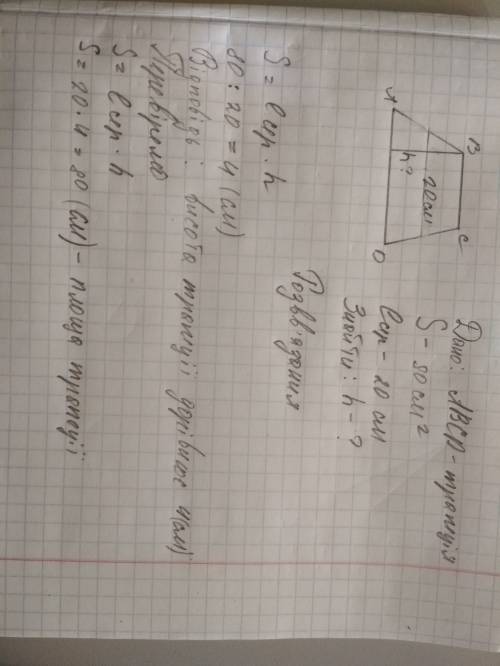 Дано: ABCD - трапеція
S - 80 см 2
lср - 20 см
Знайти: h - ?
B
C
20 см
h?
A
D
Розв'язання
S = lср · h
80 : 20 = 4 (см)
Відповідь: висота трапеції дорівнює 4(см)
Перевіримо
S = lср · h
S = 20 · 4 = 80 (см) - площа трапеції